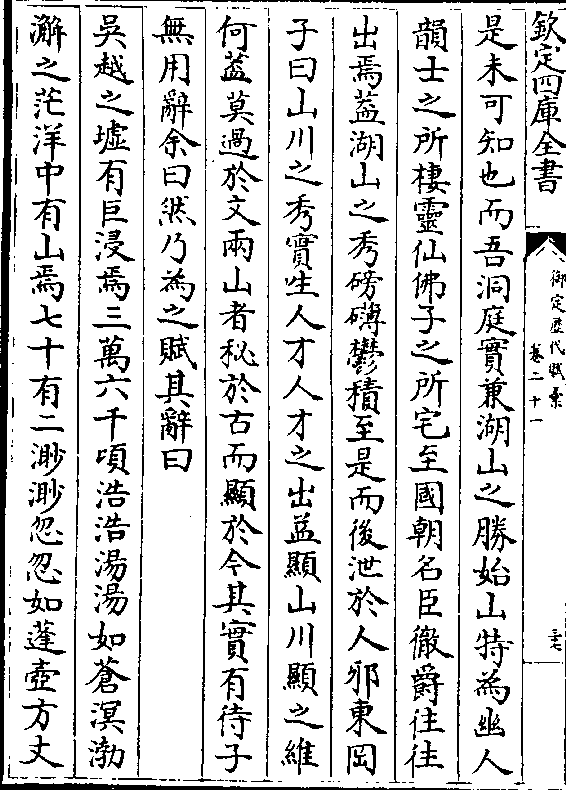 欽定四庫全書
御定歷代賦彙
卷二十一
三七
是未可知也而吾洞庭實兼湖山之勝始山特為幽人
韻士之所棲靈仙佛子之所宅至國朝名臣徹爵往往
出焉蓋湖山之秀磅礴鬱積至是而後泄於人邪東岡
子曰山川之秀實生人才人才之出益顯山川顯之維
何蓋莫過於文兩山者秘於古而顯於今其實有待子
無用辭余曰然乃為之賦其辭曰
吳越之墟有巨浸焉三萬六千頃浩浩湯湯如蒼溟渤
澥之茫洋中有山焉七十有二渺渺忽忽如蓬壺方丈